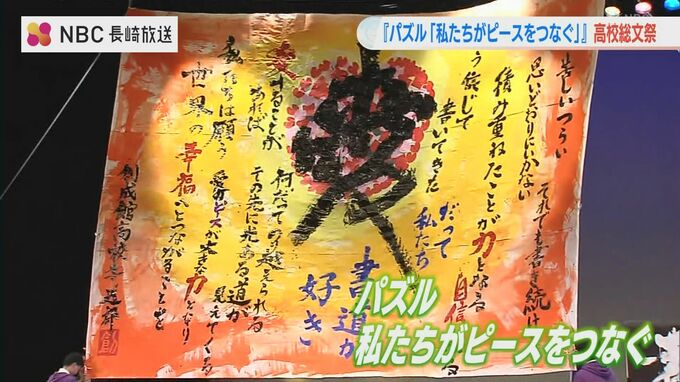 NBC 長崎放送
『パズル「私たちがピースをつなぐ」』高校総文祭
苦しい つらい
思いどおりにいかない
それでも書き続け
積み重ねたことが力となる
自信
う信じて
書いてきた
だって
私たち
書道が
好き
愛
愛することが
あれば
何だって乗り越えられる
その先に光ある道が
見えてくる
私たちは願う
愛のピースが大きな力となり
世界の幸福へとつながることを
創成館高校書道部
パズル
私たちがピースをつなぐ